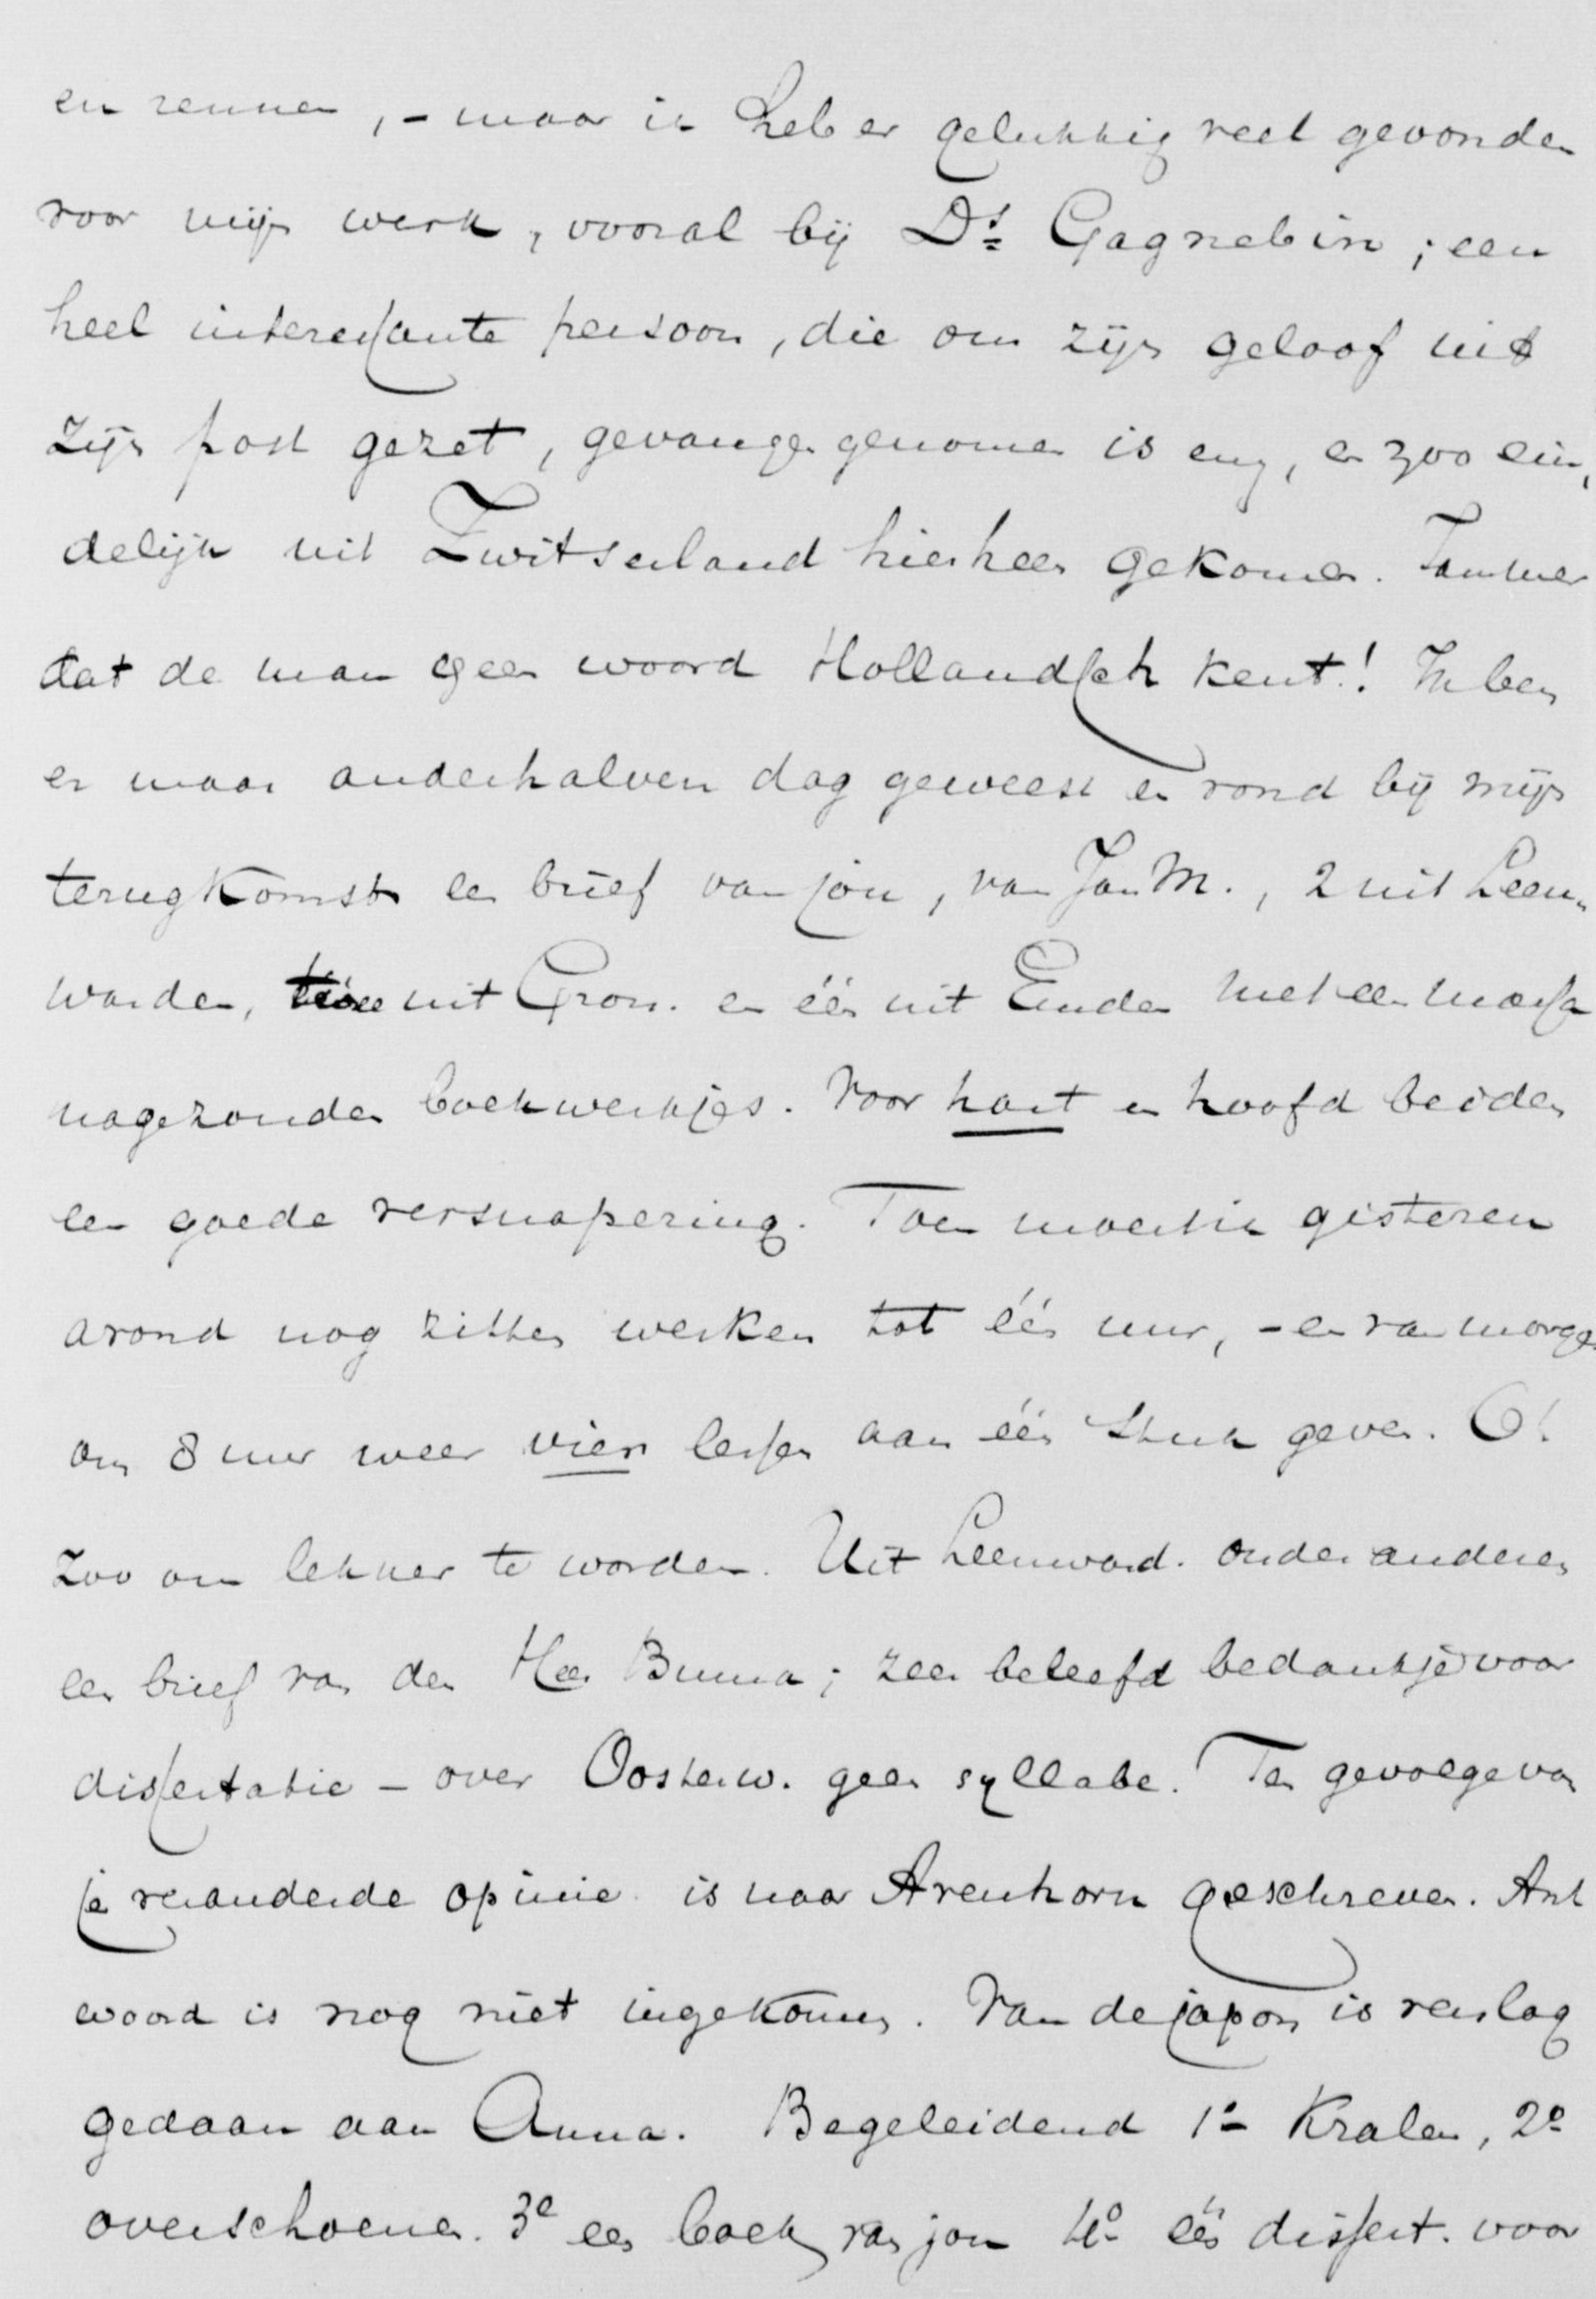 en rennen, - maar ik heb er gelukkig veel gevonden
voor mijn werk, vooral bij Ds Gagnebin; een
heel interessante persoon, die om zijn geloof uit
zijn post gezet, gevangen genomen is enz, en zoo ein„
delijk uit Zwitserland hierheen gekomen. Jammer
dat de man geen woord Hollandsch kent! Ik ben
er maar anderhalven dag geweest en vond bij mijn
terugkomst een brief van jou, van Jan M., 2 uit Leeu„
warden, uit Gron. en één uit Emden met een massa
nagezonden boekwerkjes. Voor hart en hoofd beiden
een goede versnapering. Toen moest ik gisteren
avond nog zitten werken tot één uur, - en van morgen
om 8 uur weer vier lessen aan één stuk geven. O!
zoo om lekker te worden. Uit Leeuward. onder anderen
een brief van den Heer Buma; zeer beleefd bedankje voor
dissertatie - over Oosterw. geen syllabe. Ten gevolge van
je veranderde opinie is naar Avenhorn geschreven. Ant
woord is nog niet ingekomen. Van de japon is verslag
gedaan aan Anna. Begeleidend 1o Kralen, 2o
overschoenen. 3e een boek van jou 4o één dissert. voor